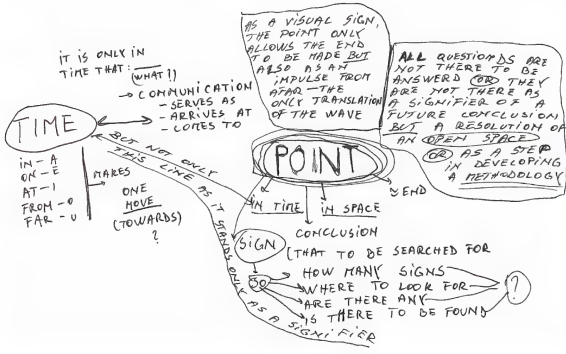 IT IS ONLY IN
TIME THAT:
(WHAT!)
→ COMMUNICATION
- SERVES AS
- ARRIVES AT
- COMES TO
TIME
IN - A
ON - E
AT - I
FROM - O
FAR - U
MAKES
ONE
MOVE
(TOWARDS)
?
AS A VISUAL SIGN,
THE POINT ONLY
ALLOWS THE END
TO BE MADE BUT
ALSO AS AN
IMPULSE FROM
AFAR - THE
ONLY TRANSLATION
OF THE WAVE
ALL QUESTIONDS ARE
NOT THERE TO BE
ANSWERD (OR) THEY
ARE NOT THERE AS
A SIGNIFIER OF A
FUTURE CONCLUSION
BUT A RESOLUTION OF
AN OPEN SPACE
(OR) AS A STEP
IN DEVELOPING
A METHODOLOGY
POINT
IN TIME
IN SPACE
≈ END
BUT NOT ONLY
THIS LINE AS IT STANDS ONLY AS A SIGNIFIER
SIGN
SO
CONCLUSION
(THAT TO BE SEARCHED FOR
HOW MANY SIGNS
WHERE TO LOOK FOR
ARE THERE ANY
IS THERE TO BE FOUND
?